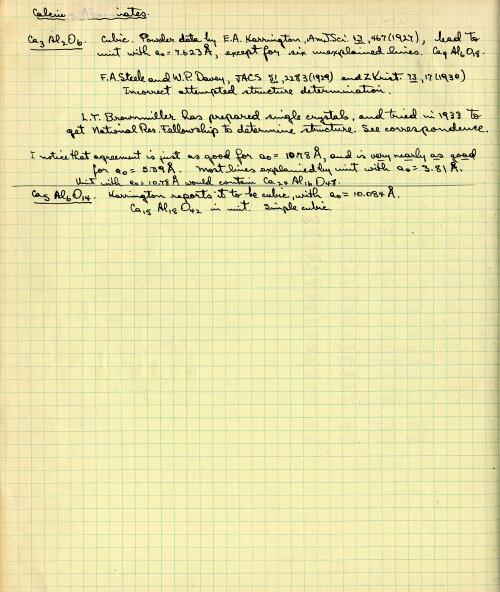 Calcium inates.
Ca3 Al2O6. Cubic. Powder data by E.A. Harrington, Am.J.Sci. 13, 467 (1927), lead to
unit with a0 = 7.623Å, except for six unexplained lines. Ca9 Al6 O18.
F.A. Steele and W.P. Davey, JACS 51, 2283 (1929) and Z. Krist. 73, 17 (1930)
Incorrect attempted structure determination.
L.T. Brownmiller has prepared single crystals, and tried in 1933 to
get National Res. Fellowship to determine structure. See correspondence.
I notice that agreement is just as good for a0 = 10.78 Å, and is very nearly as good
for a0 = 5.39 Å. Most lines explained by unit with a0 = 3.81 Å.
Unit with a0 = 10.78 Å would contain Ca24 Al16 O48.
Ca5 Al6O14. Harrington reports it to be cubic, with a0 = 10.084 Å.
Ca15 Al18 O42 in unit. Simple cubic.